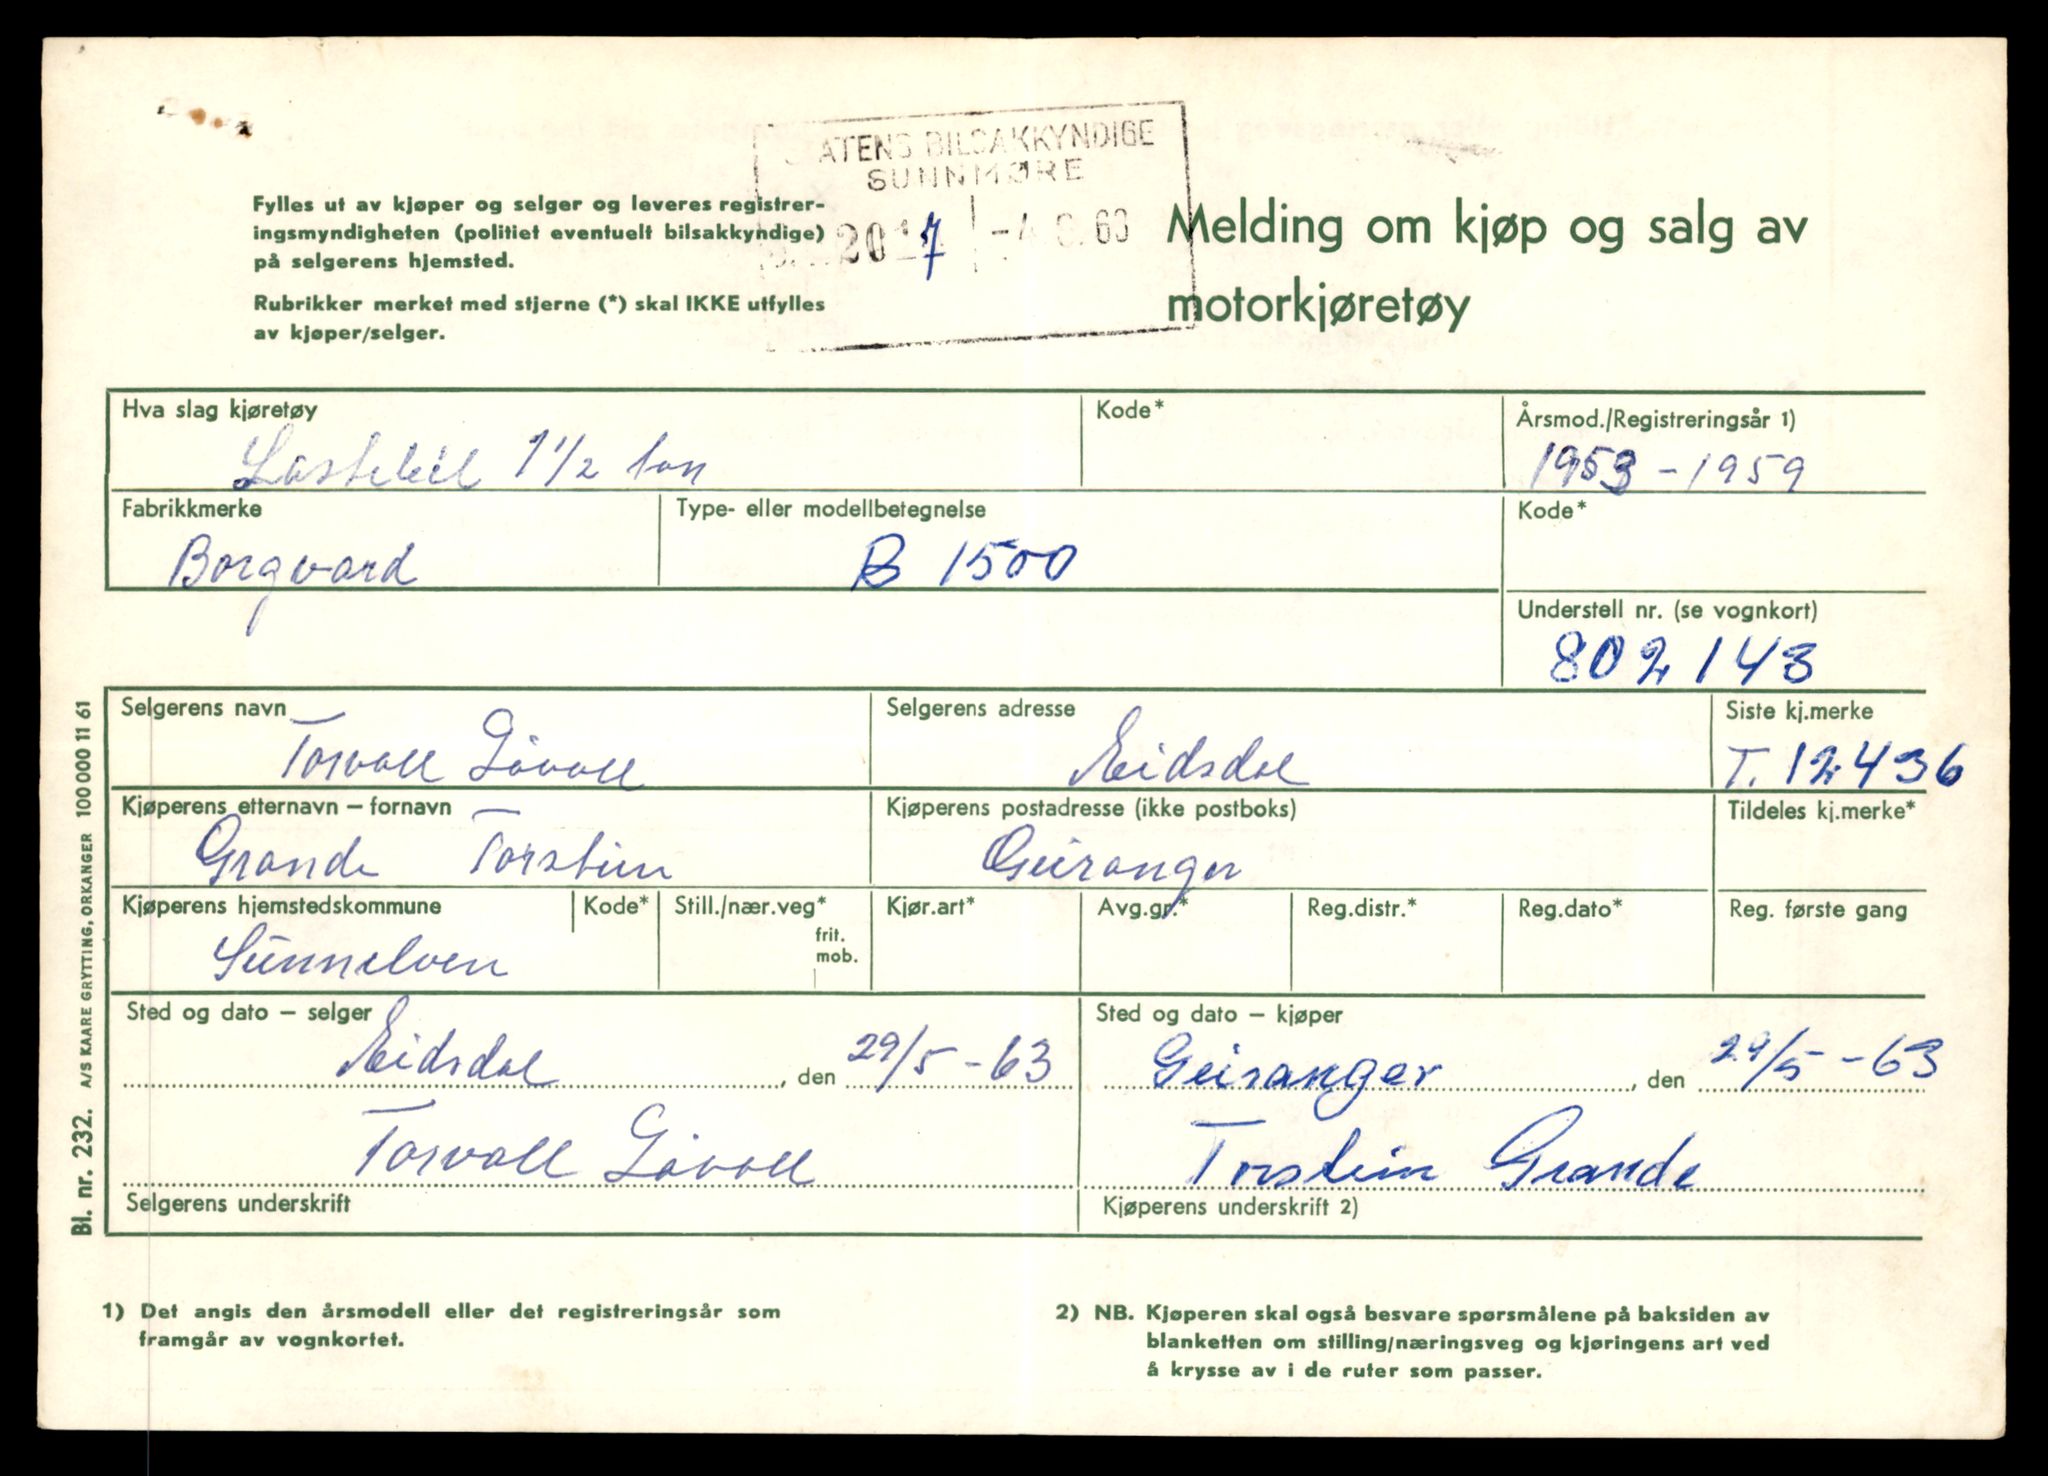 STATENS BILSAKKYNDIGE
SUNNMØRE
Fylles ut av kjøper og selger og leveres registrer-
ingsmyndigheten (politiet eventuelt bilsakkyndige)
på selgerens hjemsted.
Rubrikker merket med stjerne (*) skal IKKE utfylles
av kjøper/selger.
Melding om kjøp og salg av
motorkjøretøy
Hva slag kjøretøy
Kode*
Årsmod./Registreringsår 1)
Lastebil 1 1/2 ton
1953 - 1959
Fabrikkmerke
Type- eller modellbetegnelse
Kode*
Borgvard
B 1500
Understell nr. (se vognkort)
802143
Selgerens navn
Selgerens adresse
Siste kj.merke
Torvall Løvoll
Eidsdal
T. 12436
Kjøperens etternavn – fornavn
Kjøperens postadresse (ikke postboks)
Tildeles kj.merke*
Grande Torstein
Geiranger
Kjøperens hjemstedskommune
Kode*
Still./nær.veg*
frit.
mob.
Kjør.art*
Avg.gr.*
Reg.distr.*
Reg.dato*
Reg. første gang
Sunnelven
Sted og dato – selger
Sted og dato – kjøper
Eidsdal, den 29/5 - 63
Geiranger, den 29/5 - 63
Torvall Løvoll
Torstein Grande
Selgerens underskrift
Kjøperens underskrift 2)
1) Det angis den årsmodell eller det registreringsår som
framgår av vognkortet.
2) NB. Kjøperen skal også besvare spørsmålene på baksiden av
blanketten om stilling/næringsveg og kjøringens art ved
å krysse av i de ruter som passer.
Bl. nr. 232. A/S KAARE GRYTTING, ORKANGER 100 000 11 61